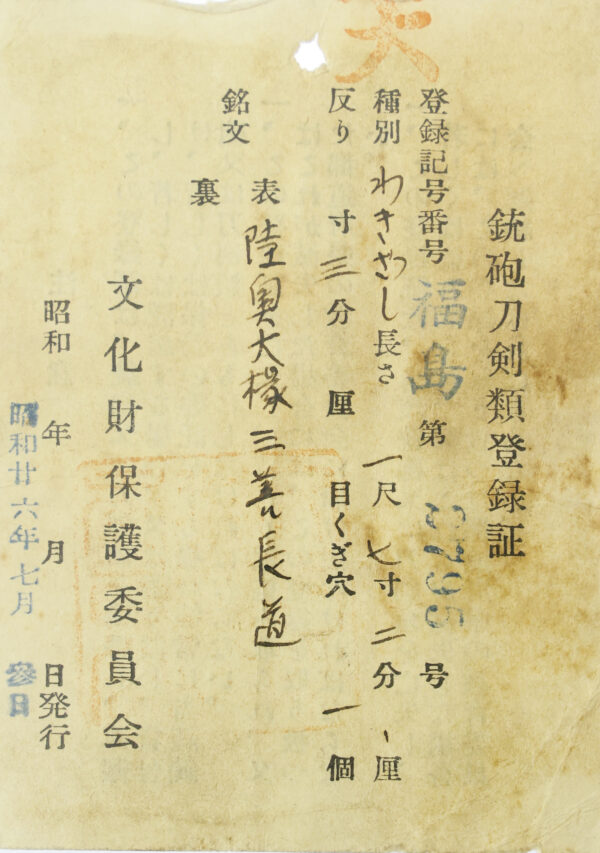 銃砲刀剣類登録証
登録記号番号 福島 第 号
種別 わきざし 長さ 一尺七寸二分 厘
反り 寸三分 厘 目くぎ穴 一個
銘文 表 陸奥大椽三善長道
裏
文化財保護委員会
昭和 年 月 日発行
昭和廿六年七月 参日